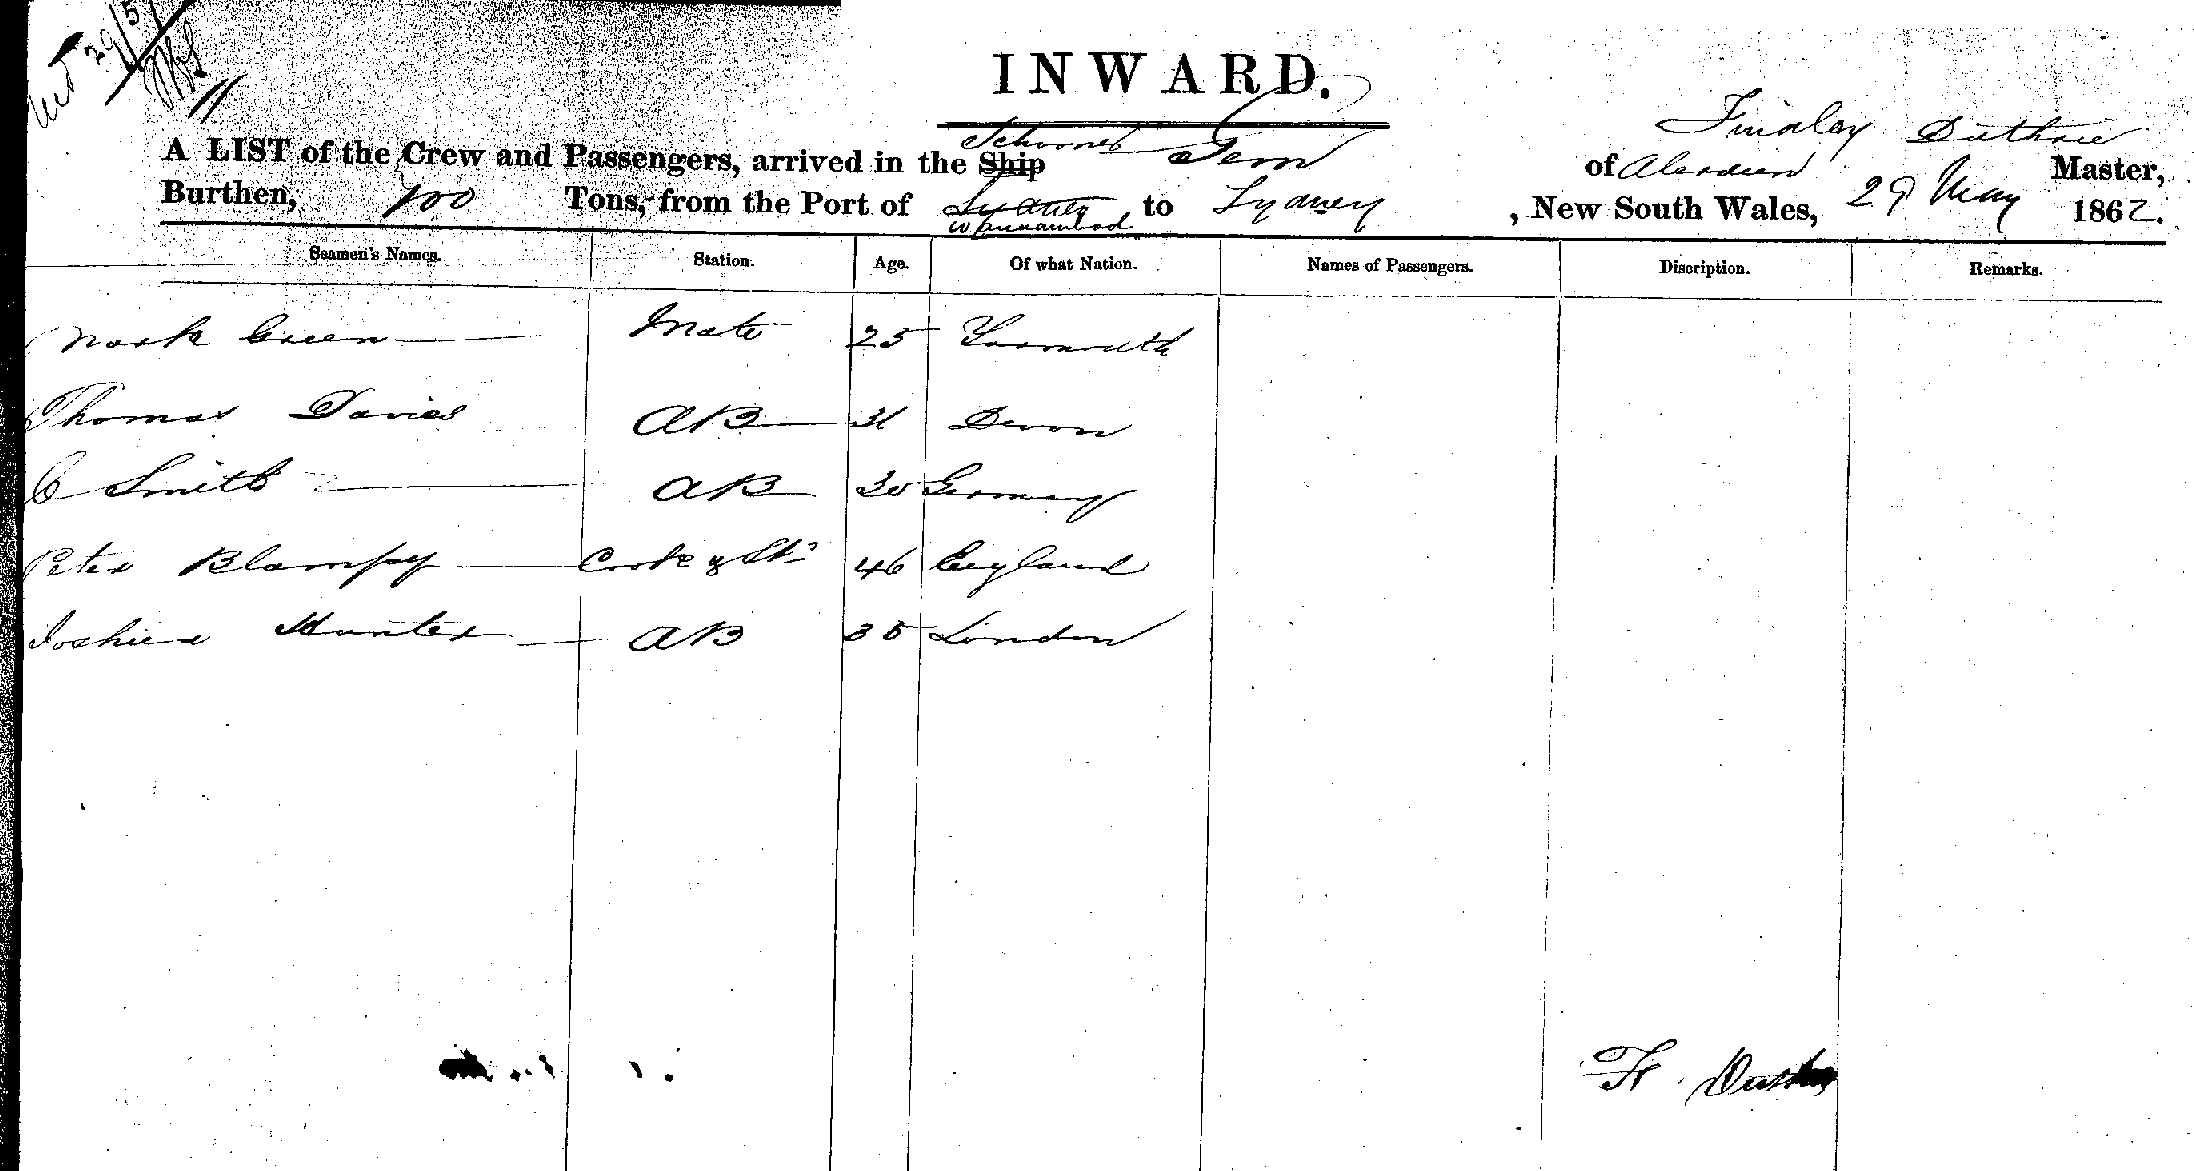 29/5/
11
INWARD.
A LIST of the Crew and Passengers, arrived in the Ship Schooner Gem of Aberdeen Findlay Duthie Master,
Burthen, 100 Tons, from the Port of Sydney to Sydney, New South Wales, 29 May 1862.
Seamen's Names. Station. Age. Of what Nation. Names of Passengers. Discription. Remarks.
Mark Green Mate 25 Yarmouth
Thomas Davies AB 31 Devon
C Smith AB 30 Germany
Peter Blampy Cook & St 46 England
Joshua Hunter AB 35 London
F. Duthie